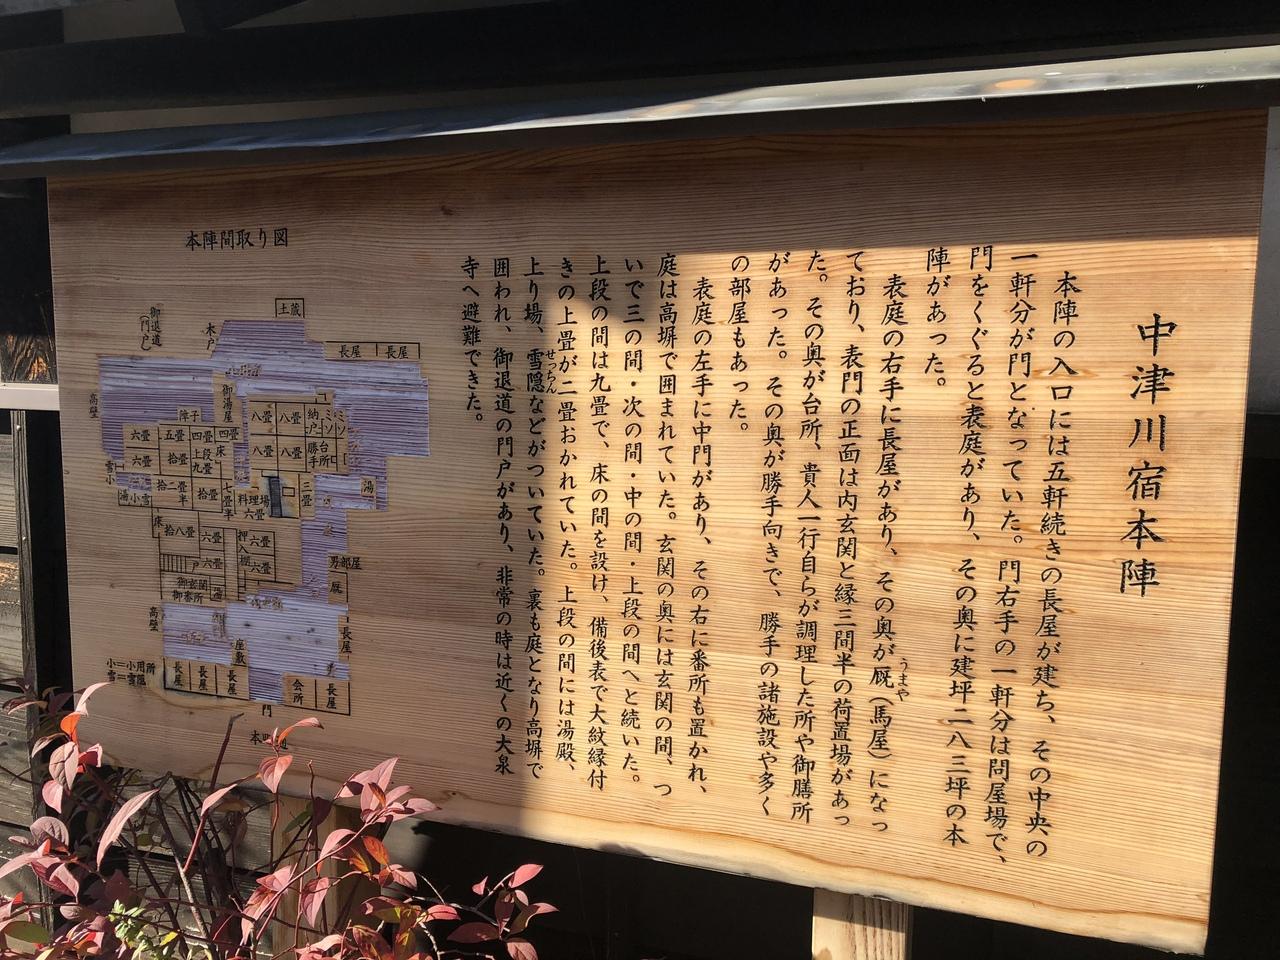 中津川宿本陣
本陣の入口には五軒続きの長屋が建ち、その中央の
一軒分が門となっていた。門右手の一軒分は問屋場で、
門をくぐると表庭があり、その奥に建坪二八三坪の本
陣があった。
表庭の右手に長屋があり、その奥が厩（馬屋）になっ
うまや
ており、表門の正面は内玄関と縁三間半の荷置場があっ
た。その奥が台所、貴人一行自らが調理した所や御膳所
があった。その奥が勝手向きで、勝手の諸施設や多く
の部屋もあった。
表庭の左手に中門があり、その右に番所も置かれ、
庭は高塀で囲まれていた。玄関の奥には玄関の間、つ
いで三の間・次の間・中の間・上段の間へと続いた。
上段の間は九畳で、床の間を設け、備後表で大紋縁付
きの上畳が二畳おかれていた。上段の間には湯殿、
上り場、雪隠などがついていた。裏も庭となり高塀で
せっちん
囲われ、御退道の門戸があり、非常の時は近くの大泉
寺へ避難できた。
本陣間取り図
土蔵
木戸
御退道
（門戸）
長屋 長屋
高壁
御湯屋
障子
八畳 八畳 納戸 ミソ ミソ
六畳 五畳 四畳 四畳
八畳 八畳 勝手 台所
六畳 拾畳 上段九畳 床
雪 小
湯 小 雪
拾二畳半 拾畳 七畳半
料理場 六畳
三畳
湯
床
拾八畳 六畳
押入 六畳
戸 六畳 棚 六畳
御玄関
御番所
男部屋
厩
高壁
長屋
座敷
小＝小用所
雪＝雪隠
長屋 長屋 長屋
会所 長屋
門